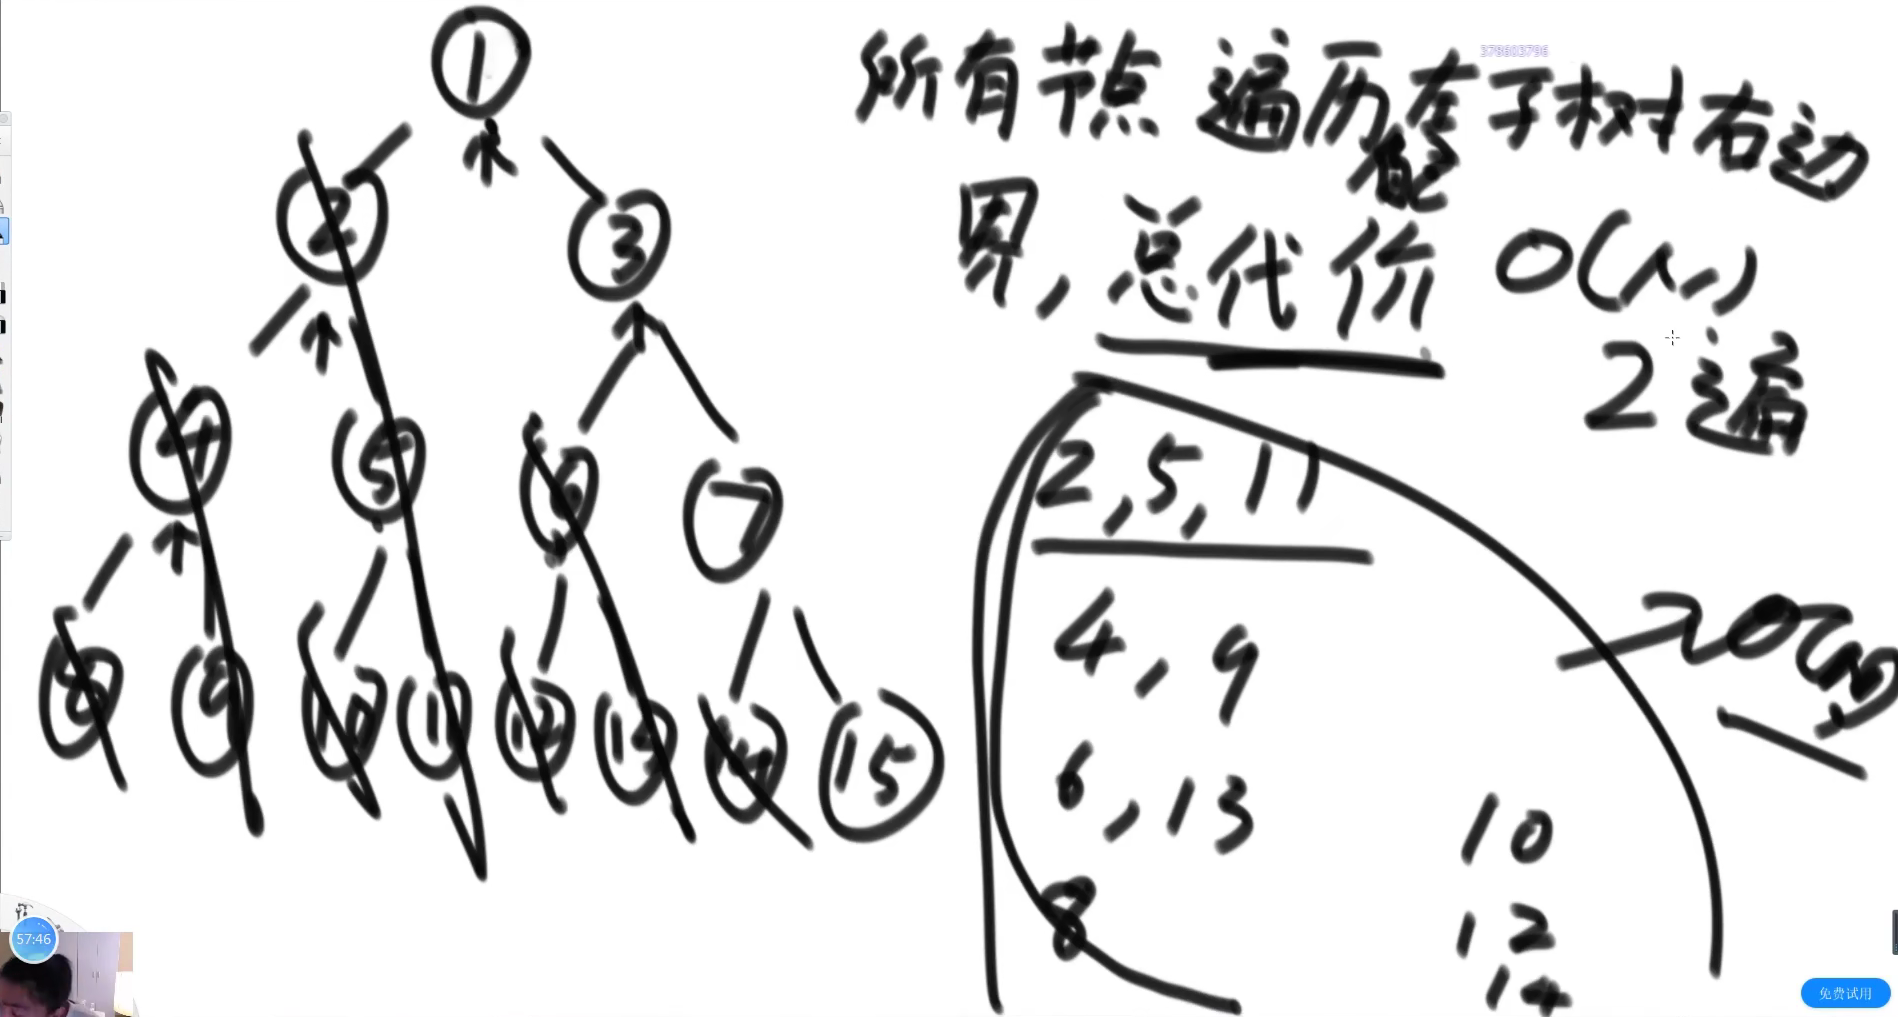 1
2 3
4 5 6 7
8 9 10 11 12 13 14 15
378603796
所有节点 遍历左子树右边
界, 总代价 O(N)
2遍
2, 5, 11
4, 9
6, 13
8
10
12
14
O(N)
57:46
免费试用